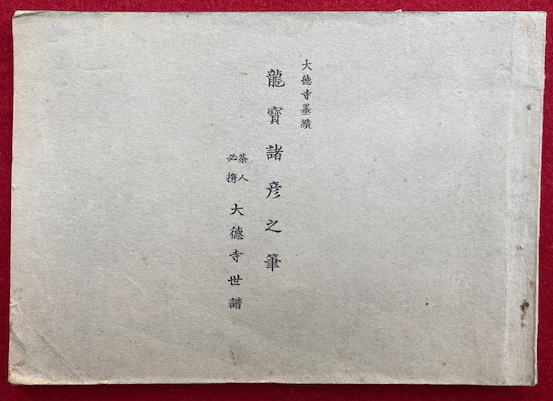 大德寺墨蹟
龍寶諸彦之筆
茶人
必携
大德寺世譜